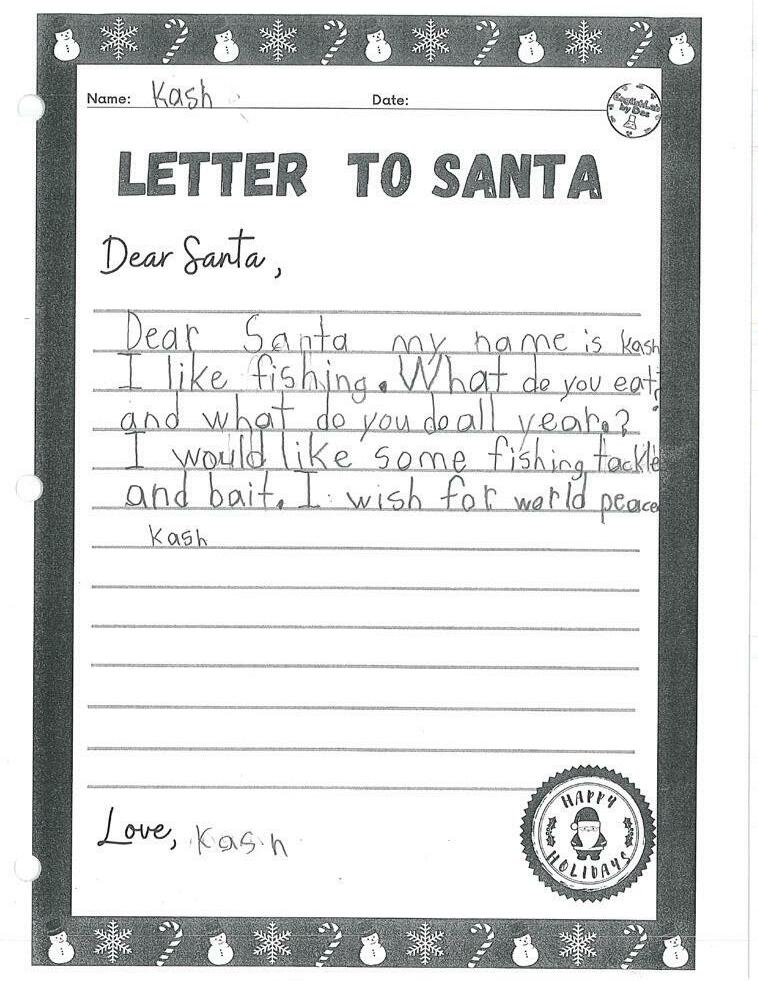 Name: Kash Date:
EnglishLab
by Dee
LETTER TO SANTA
Dear Santa,
Dear Santa my name is Kash
I like fishing. What do you eat?
and what do you do all year.?
I would like some fishing tackle
and bait. I wish for world peace
Kash
Love, Kash
HAPPY
HOLIDAYS